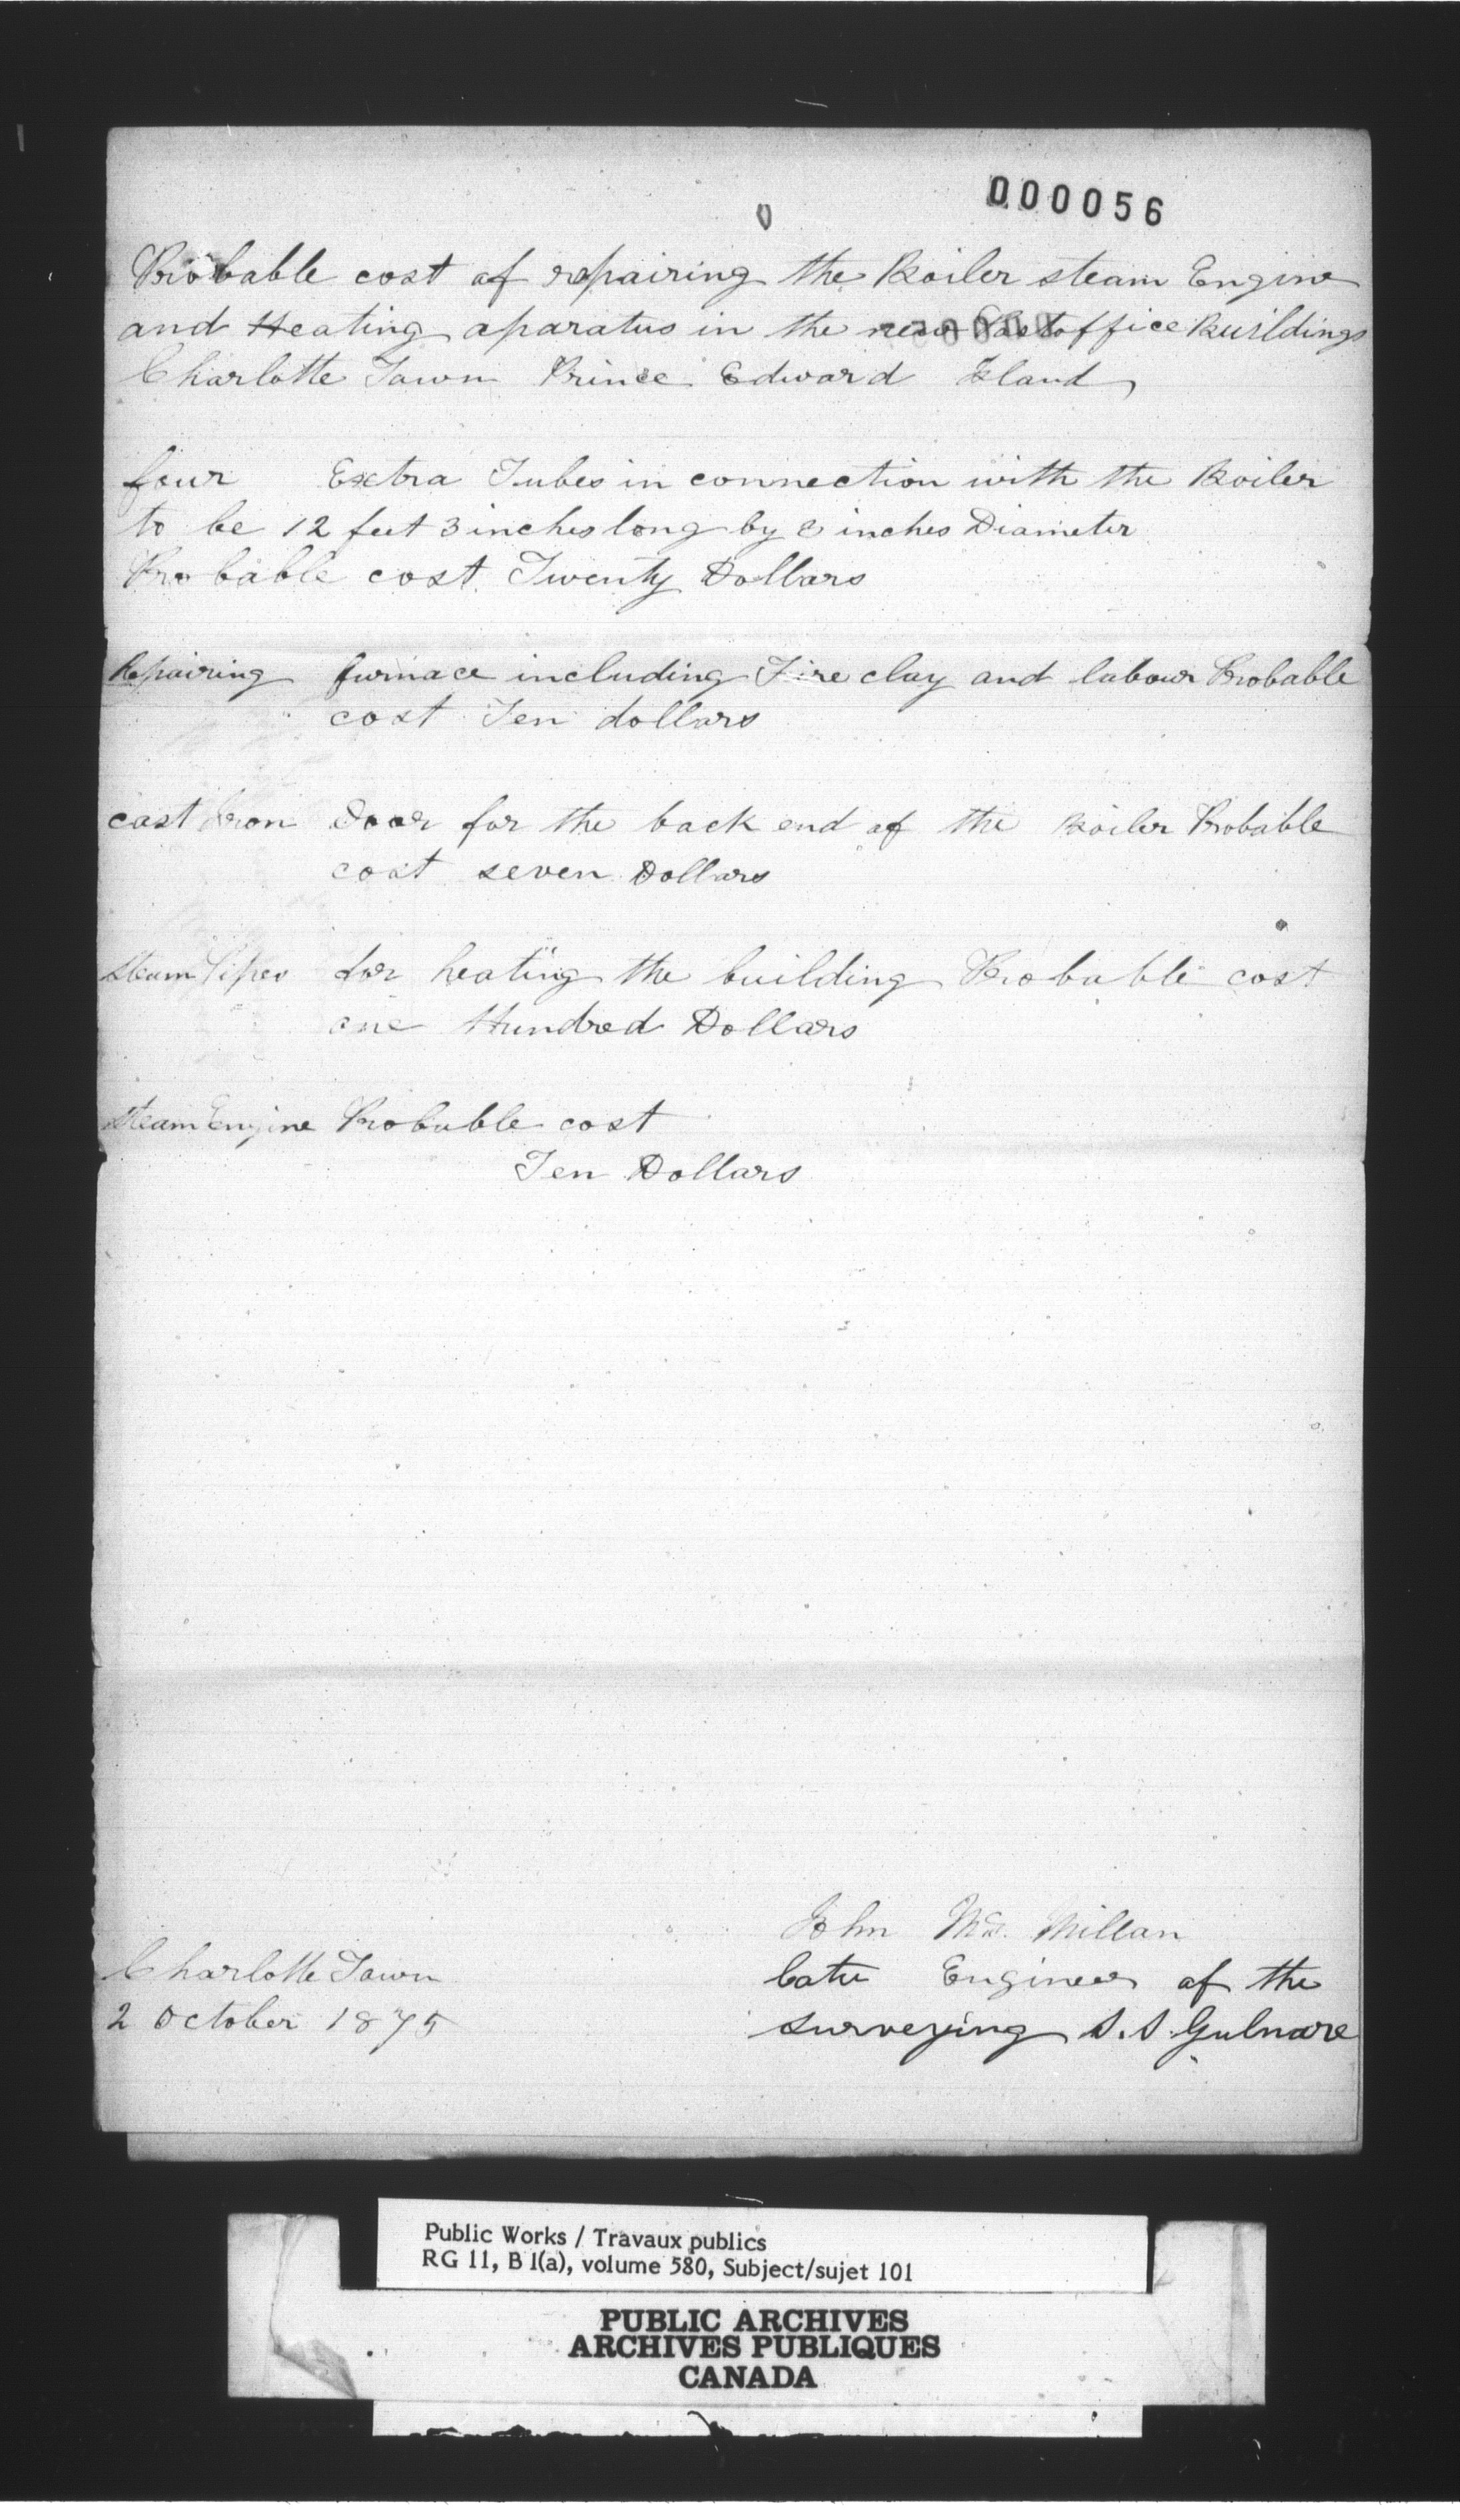 000056
Probable cost of repairing the Boiler steam Engine
and Heating aparatus in the new Postoffice Buildings
Charlotte Town Prince Edward Island,
four Extra Tubes in connection with the Boiler
to be 12 feet 3 inches long by inches Diameter
Probable cost Twenty Dollars
Repairing furnace including Fire clay and labour Probable
cost Ten dollars
cast Iron Door for the back end of the Boiler Probable
cost seven Dollars
steam Pipes for heating the building Probable cost
one Hundred Dollars
steam Engine Probable cost
Ten Dollars
John Mc. Millan
Charlotte Town
late Engineer of the
2 October 1875
surveying S.S. Gulnare
Public Works / Travaux publics
RG 11, B 1(a), volume 580, Subject/sujet 101
PUBLIC ARCHIVES
ARCHIVES PUBLIQUES
CANADA